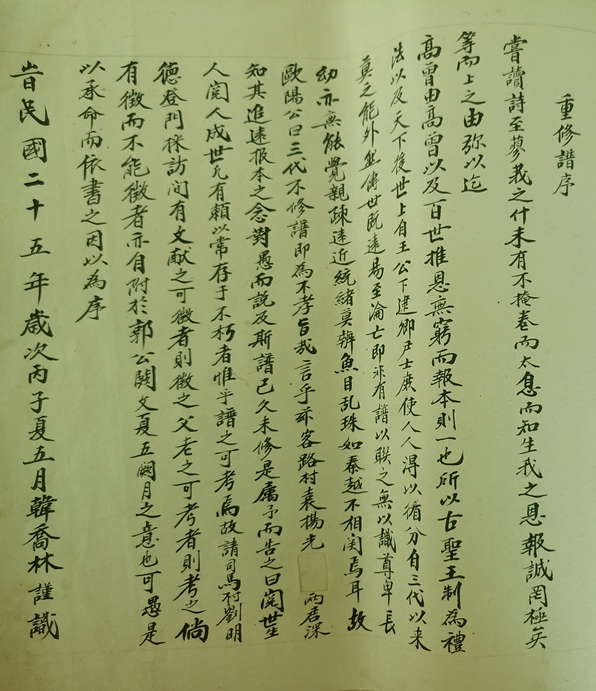 重修譜序
嘗讀詩至蓼莪之什未有不掩卷而太息而知生我之恩報誠罔極矣
等而上之由弥以迄
高曾由高曾以及百世推恩無窮而報本則一也所以古聖王制為禮
法以及天下後世上自王公下逮卿尹士庶使人人得以循分自三代以來
莫之能外無俦世既遠易至淪亡即非有譜以聯之無以識尊卑長
幼亦無能覺親疎遠近統緒莫辨魚目乱珠如秦越不相関焉耳故
歐陽公曰三代不修譜即為不孝旨哉言乎茲客路村袁揚光 兩居深
知其追遠报本之念對愚而説及斯譜已久未修是属予而告之曰開世生
人開人成世凡有賴以常存于不朽者惟乎譜之可考焉故請司馬村劉明
德登門採訪间有文献之可徵者則徵之父老之可考者則考之倘
有徵而不能徵者亦自附於郭公闕文夏五闕月之意也可愚是
以承命而依書之因以為序
旹民國二十五年歲次丙子夏五月韓喬林謹識